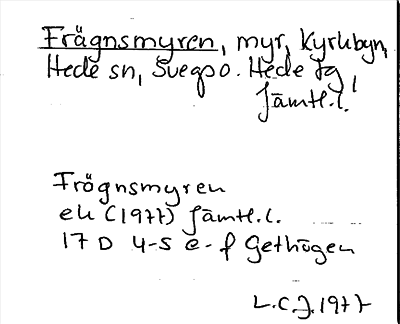 Frägnsmyren, myr, Kyrkbyn,
Hede sn, Svegs o. Hede tg,
Jämtl.l.
Frögnsmyren
ek (1977) Jämtl.l.
17 D 4-5 e-f Gethögen
L.C.J. 1977